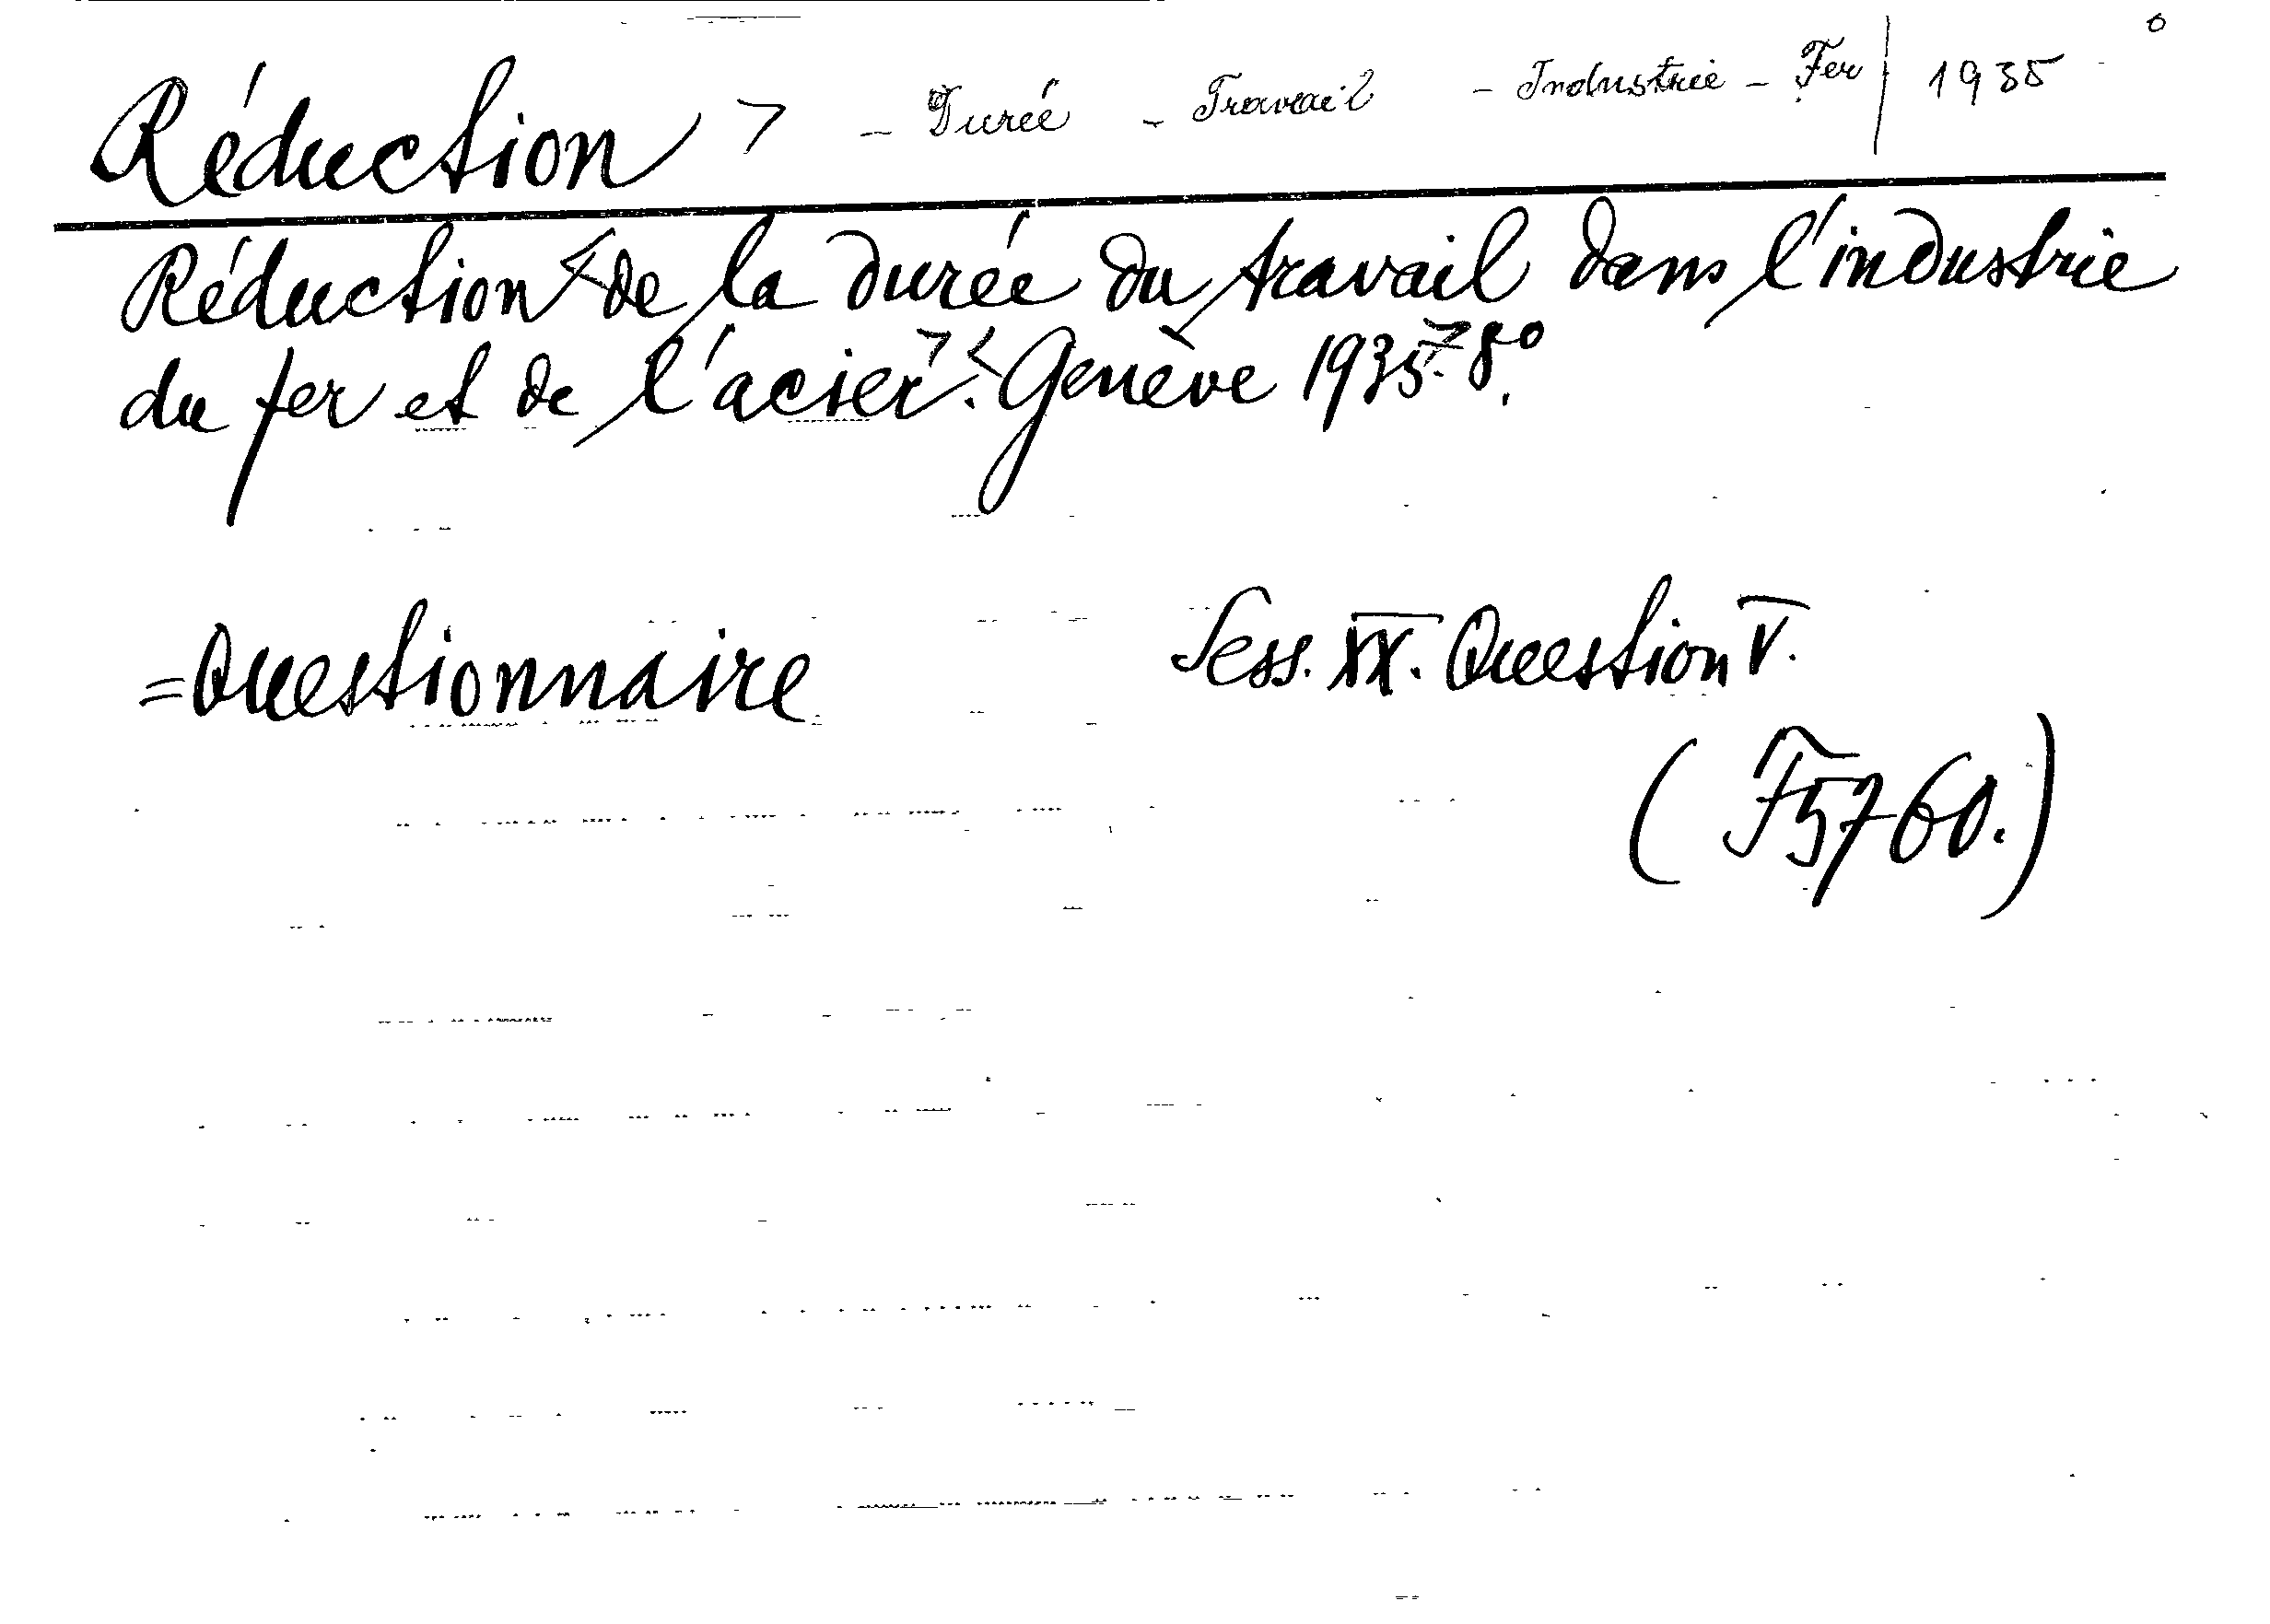 Réduction > - Durée - Travail - Industrie - Fer / 1935
Réduction < de la durée du travail dans l'industrie
du fer et de l'acier. > < Genève 1935. > 8°.
= Questionnaire Sess. XX. Question V.
(F5760.)